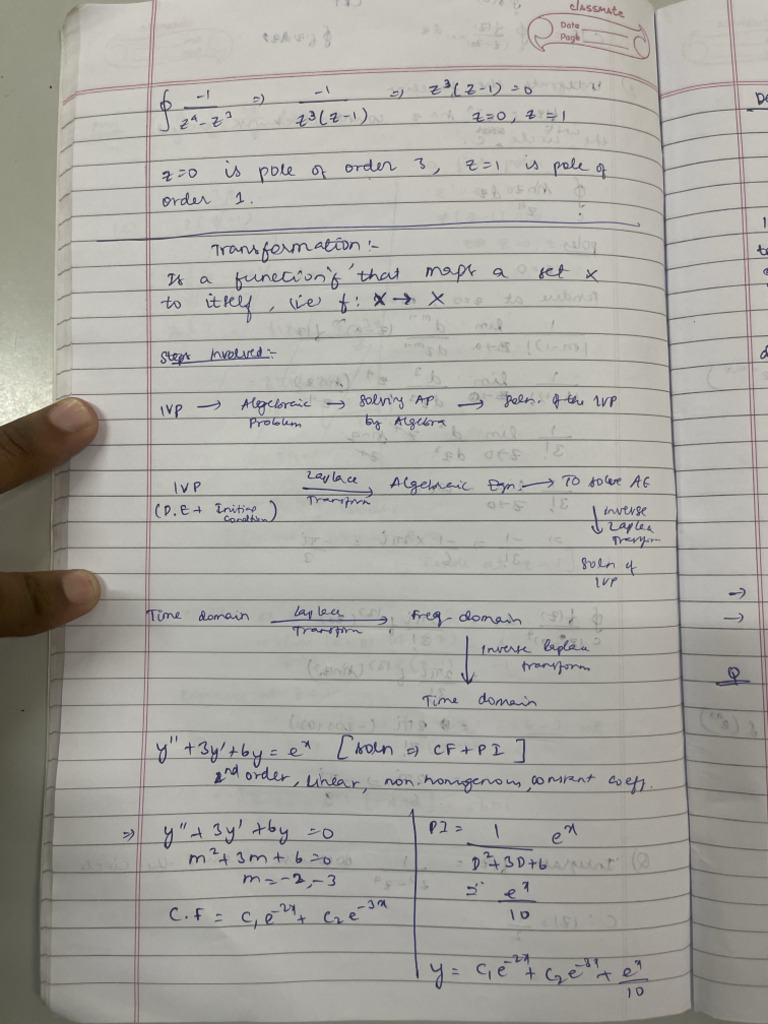 classmate
Date
Page
∮ -1/(z⁴-z³) ⇒ -1/(z³(z-1)) ⇒ z³(z-1)=0
z=0, z=1
z=0 is pole of order 3, z=1 is pole of
order 1.
Transformation:-
Is a function 'f' that maps a set x
to itself, i.e f: X → X
Steps involved:-
IVP → Algebraic Problem → Solving AP by Algebra → Soln. of the IVP
IVP (D.E + Initial Condition) Laplace Transform → Algebraic Eqn: → To solve AE
↓ inverse Laplace Transform
Soln of
IVP
Time domain Laplace Transform → Freq. domain
↓ inverse Laplace transform
Time domain
y'' + 3y' + 6y = eˣ [Soln ⇒ CF + PI]
2nd order, linear, non-homogenous, constant coeff.
⇒ y'' + 3y' + 6y = 0
m² + 3m + 6 = 0
m = -2, -3
C.F = C₁e⁻²ˣ + C₂e⁻³ˣ
PI = 1/(D²+3D+6) eˣ
= eˣ/10
y = C₁e⁻²ˣ + C₂e⁻³ˣ + eˣ/10
Q